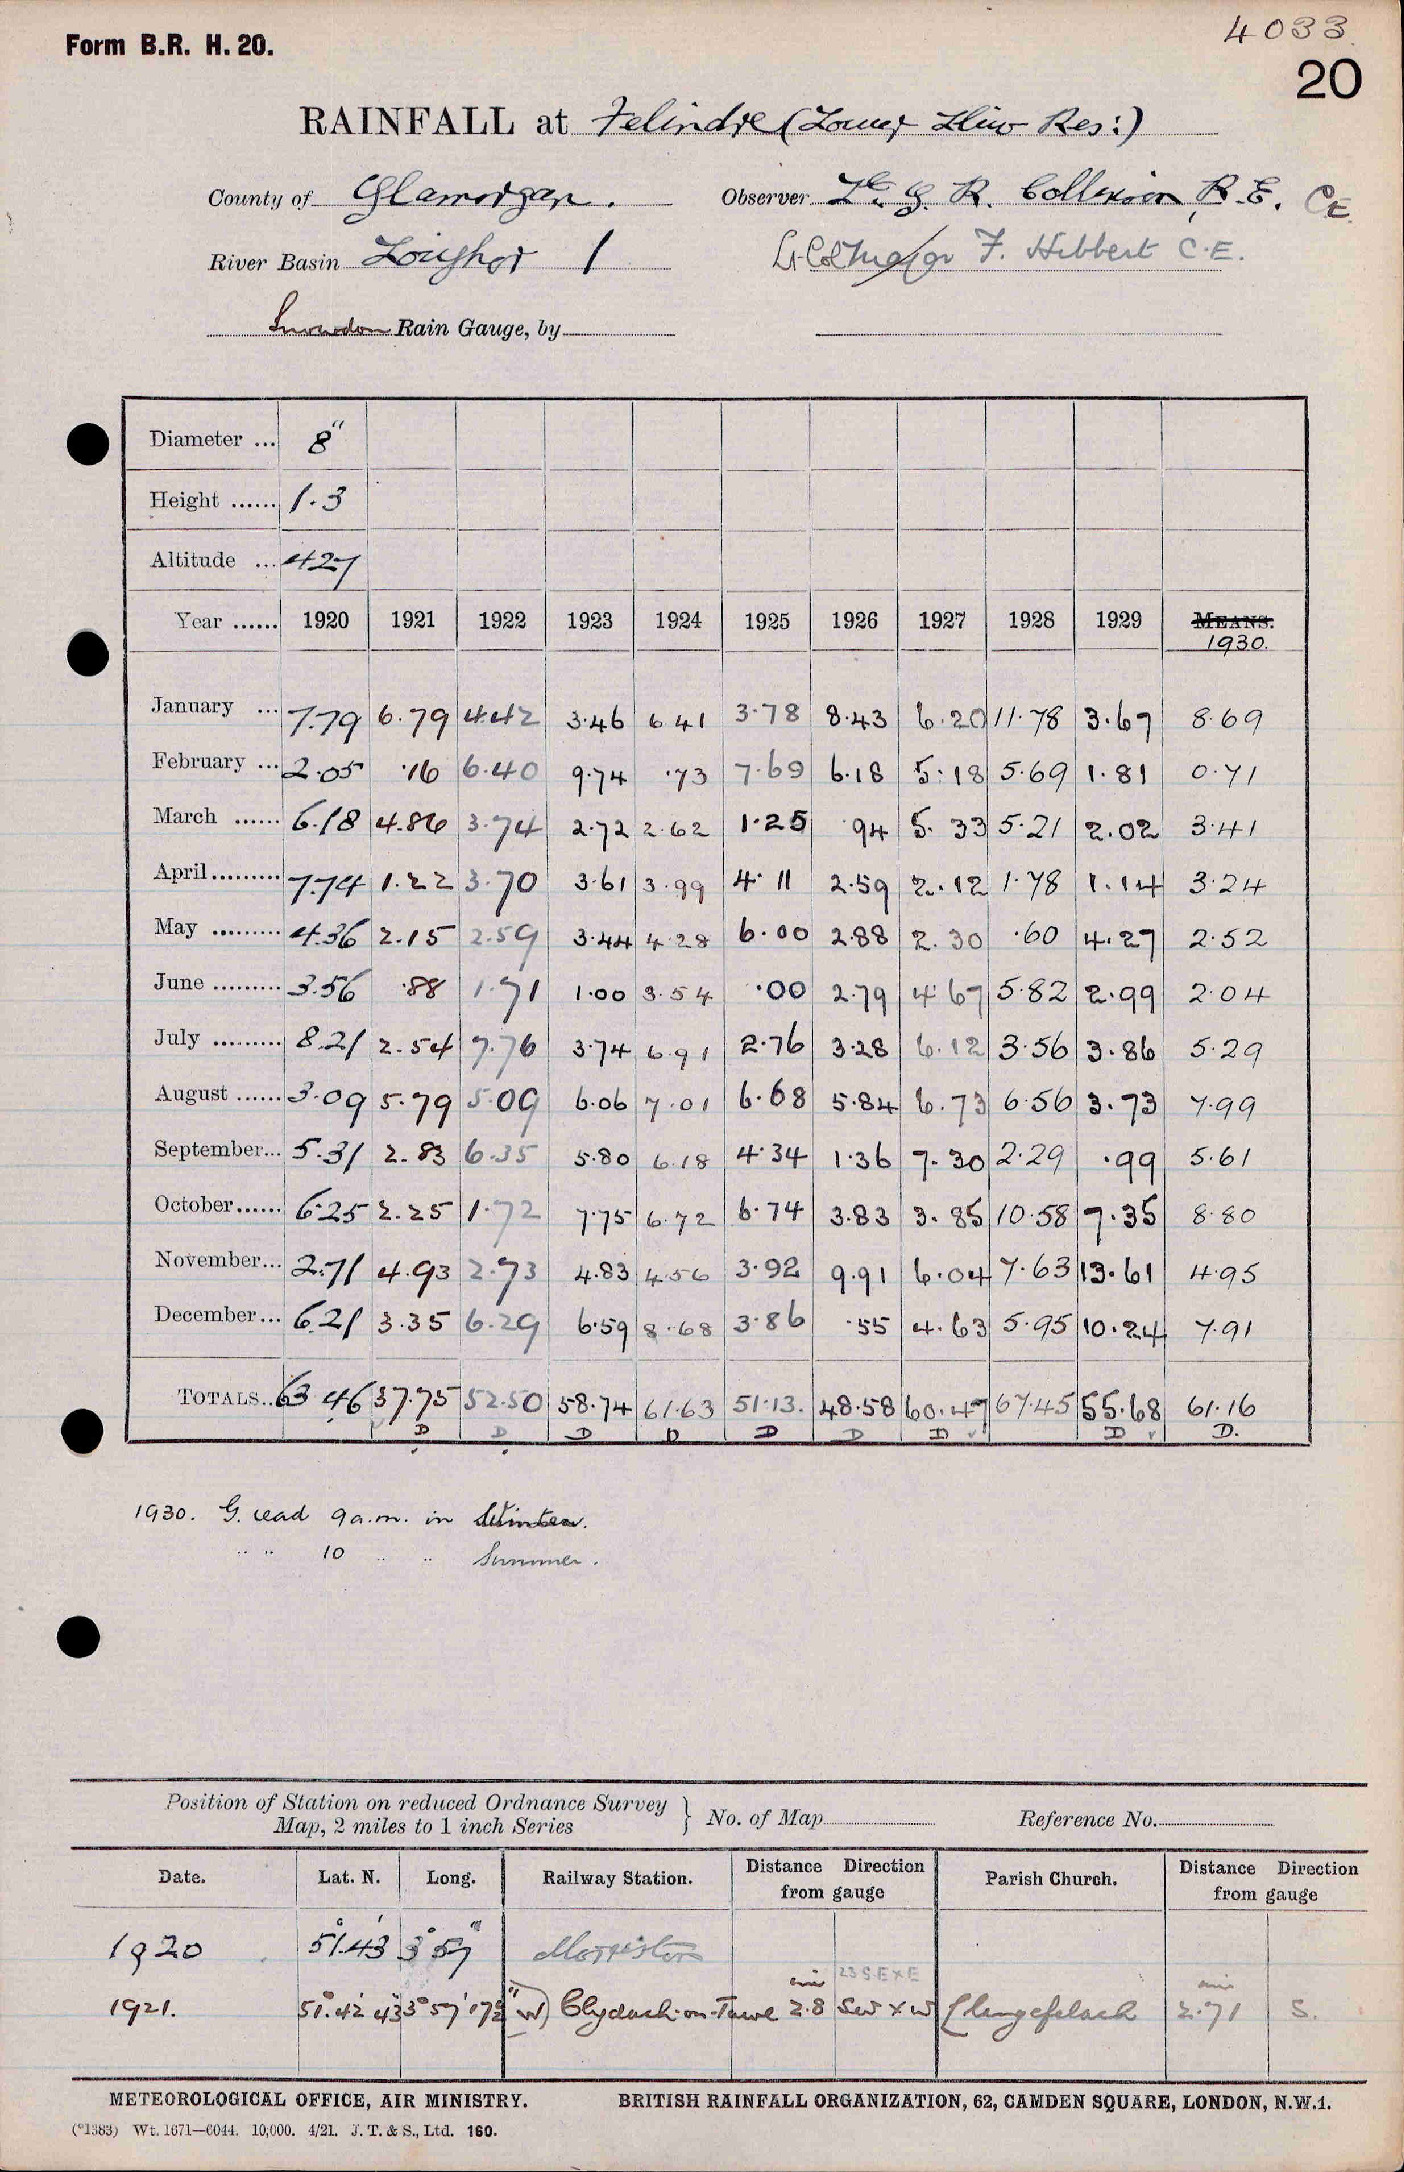 4033
Form B.R. H. 20.
20
RAINFALL at Felindre (Lower Lliw Res:)
County of Glamorgan. Observer G. R. Collinson, R.E. CE
River Basin Loughor 1 Lt-Col Major F. Hibbert C.E.
Snowdon Rain Gauge, by
Diameter ... 8"
Height ...... 1.3
Altitude ... 427
Year ...... 1920 1921 1922 1923 1924 1925 1926 1927 1928 1929 MEANS. 1930.
January ... 7.79 6.79 4.42 3.46 6.41 3.78 8.43 6.20 11.78 3.67 8.69
February ... 2.05 .16 6.40 9.74 .73 7.69 6.18 5.18 5.69 1.81 0.71
March ...... 6.18 4.86 3.74 2.72 2.62 1.25 .94 5.33 5.21 2.02 3.41
April ......... 7.74 1.22 3.70 3.61 3.99 4.11 2.59 2.12 1.78 1.14 3.24
May ......... 4.36 2.15 2.59 3.44 4.28 6.00 2.88 2.30 .60 4.27 2.52
June ......... 3.56 .88 1.71 1.00 3.54 .00 2.79 4.67 5.82 2.99 2.04
July ......... 8.21 2.54 7.76 3.74 6.91 2.76 3.28 6.12 3.56 3.86 5.29
August ...... 3.09 5.79 5.09 6.06 7.01 6.68 5.84 6.73 6.56 3.73 7.99
September... 5.31 2.83 6.35 5.80 6.18 4.34 1.36 7.30 2.29 .99 5.61
October...... 6.25 2.25 1.72 7.75 6.72 6.74 3.83 3.85 10.58 7.35 8.80
November... 2.71 4.93 2.73 4.83 4.56 3.92 9.91 6.04 7.63 13.61 4.95
December... 6.21 3.35 6.29 6.59 8.68 3.86 .55 4.63 5.95 10.24 7.91
TOTALS.. 63.46 37.75 52.50 58.74 61.63 51.13. 48.58 60.47 67.45 55.68 61.16
D D D D D D D D D.
1930. G. read 9 a.m. in Winter.
" " 10 " " Summer.
Position of Station on reduced Ordnance Survey
Map, 2 miles to 1 inch Series } No. of Map Reference No.
Date. Lat. N. Long. Railway Station. Distance Direction from gauge Parish Church. Distance Direction from gauge
1920 51°.43' 3° 57' Morriston
23 S.E x E
1921. 51°.42' 43 3° 57' 17½" (W) Clydach-on-Tawe 2.8 mi SW x W Llangefelach 2.71 mi S.
METEOROLOGICAL OFFICE, AIR MINISTRY. BRITISH RAINFALL ORGANIZATION, 62, CAMDEN SQUARE, LONDON, N.W.1.
(*1383) Wt. 1671—6044. 10,000. 4/21. J. T. & S., Ltd. 160.